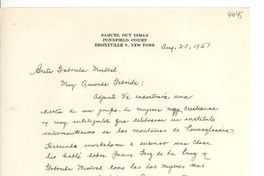 SAMUEL GUY INMAN
PONDFIELD COURT
BRONXVILLE 8, NEW YORK
Aug. 20, 1951
Gabriela Mistral
Muy Querida Gabriela:
Adjunto Ud. encontrará una
carta de un grupo de mujeres muy cristianas
y muy inteligentes que celebraron un instituto
interamericano en las montañas de Pennsylvania.
Haciendo workshops e enseñar una clase
les hablé sobre Juana Inez de la Cruz y
Gabriela Mistral como las dos mujeres mas